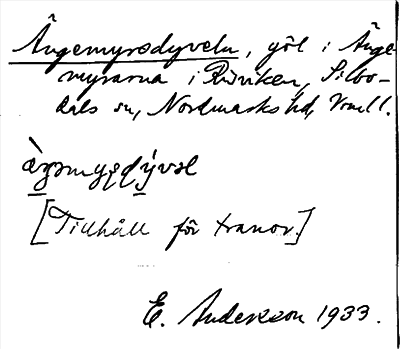 Ängemyrsdyveln, göl i Änge-
myrarna i Råviken, Silbo-
dals sn, Nordmarks hd, Vrml.
[Tillhåll för tranor.]
E. Andersson 1933.